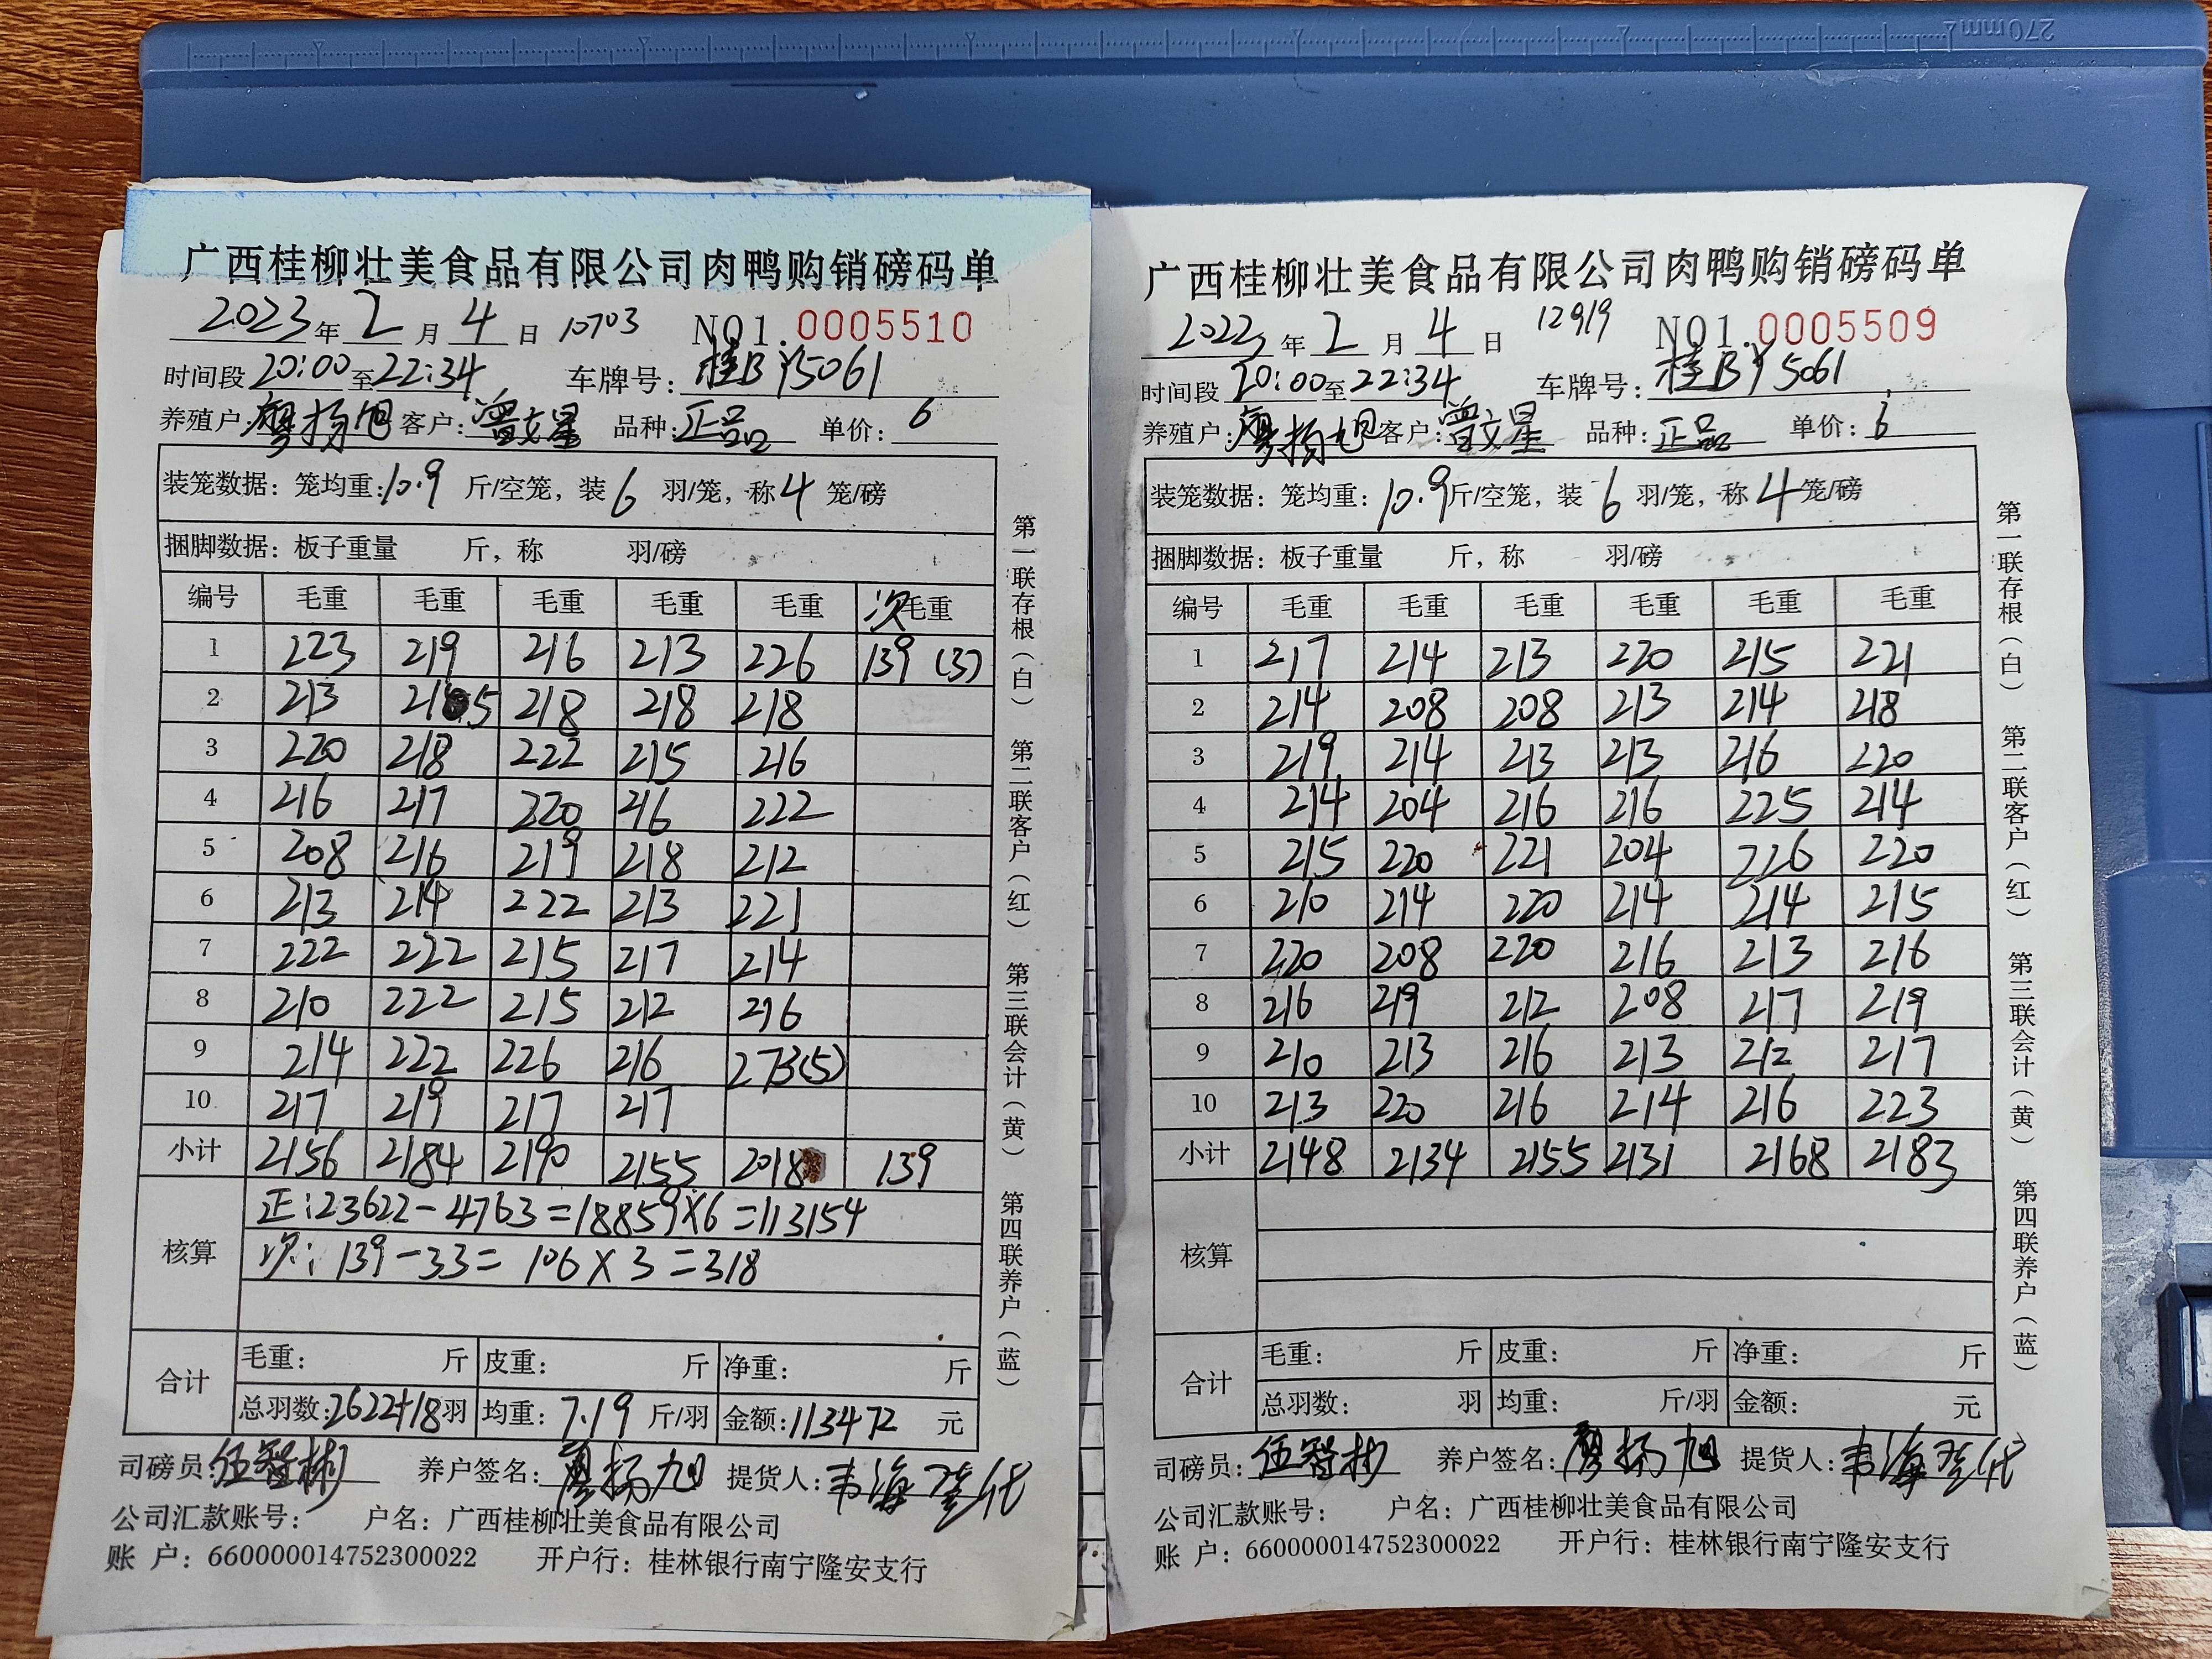 270mm
广西桂柳壮美食品有限公司肉鸭购销磅码单
2023年2月4日 10703 NO1.0005510
时间段20:00至22:34 车牌号:桂BY5061
养殖户:廖扬旭 客户:曾文星 品种:正品 单价:6
装笼数据:笼均重:10.9 斤/空笼,装6 羽/笼,称4 笼/磅
捆脚数据:板子重量 斤,称 羽/磅
编号 毛重 毛重 毛重 毛重 毛重 次毛重
1 223 219 216 213 226 139 (3)
2 213 215 218 218 218
3 220 218 222 215 216
4 216 217 220 216 222
5 208 216 219 218 212
6 213 214 222 213 221
7 222 222 215 217 214
8 210 222 215 212 216
9 214 222 226 216 273(5)
10 217 219 217 217
小计 2156 2184 2190 2155 2018 139
核算
正:23622-4763=18859×6=113154
次:139-33=106×3=318
合计
毛重: 斤 皮重: 斤 净重: 斤
总羽数:2622+18羽 均重:7.19 斤/羽 金额:113472 元
司磅员:伍智彬 养户签名:廖扬旭 提货人:韦海 代
公司汇款账号: 户名:广西桂柳壮美食品有限公司
账 户:660000014752300022 开户行:桂林银行南宁隆安支行
第一联存根(白) 第二联客户(红) 第三联会计(黄) 第四联养户(蓝)
广西桂柳壮美食品有限公司肉鸭购销磅码单
2023年2月4日 12919 NO1.0005509
时间段20:00至22:34 车牌号:桂BY5061
养殖户:廖扬旭 客户:曾文星 品种:正品 单价:6
装笼数据:笼均重:10.9斤/空笼,装6 羽/笼,称4笼/磅
捆脚数据:板子重量 斤,称 羽/磅
编号 毛重 毛重 毛重 毛重 毛重 毛重
1 217 214 213 220 215 221
2 214 208 208 213 214 218
3 219 214 213 213 216 220
4 214 204 216 216 225 214
5 215 220 221 204 226 220
6 210 214 220 214 214 215
7 220 208 220 216 213 216
8 216 219 212 208 217 219
9 210 213 216 213 212 217
10 213 220 216 214 216 223
小计 2148 2134 2155 2131 2168 2183
核算
合计
毛重: 斤 皮重: 斤 净重: 斤
总羽数: 羽 均重: 斤/羽 金额: 元
司磅员:伍智彬 养户签名:廖扬旭 提货人:韦海 代
公司汇款账号: 户名:广西桂柳壮美食品有限公司
账 户:660000014752300022 开户行:桂林银行南宁隆安支行
第一联存根(白) 第二联客户(红) 第三联会计(黄) 第四联养户(蓝)